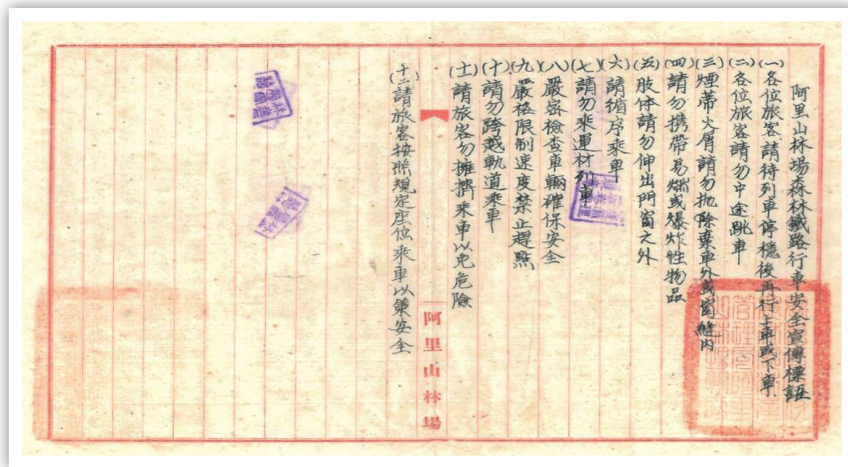 阿里山林場森林鐵路行車安全宣傳標語
(一)各位旅客請待列車停穩後再行上車或下車
(二)各位旅客請勿中途跳車
(三)煙蒂火屑請勿拋除棄車外或窗縫內
(四)請勿攜帶易燃或爆炸性物品
(五)肢体請勿伸出門窗之外
(六)請循序乘車
(七)請勿乘運材列車
(八)嚴密檢查車輛確保安全
(九)嚴格限制速度禁止趕點
(十)請勿跨越軌道乘車
(十一)請旅客勿擁擠乘車以免危險
(十二)請旅客按照規定座位乘車以策安全
阿里山林場